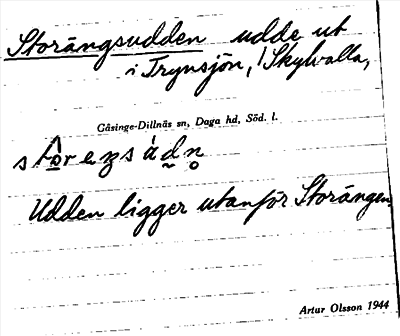 Storängsudden udde ut
i Trynsjön, Skylvalla,
Gåsinge-Dillnäs sn, Daga hd, Söd. l.
Udden ligger utanför Storängen
Artur Olsson 1944